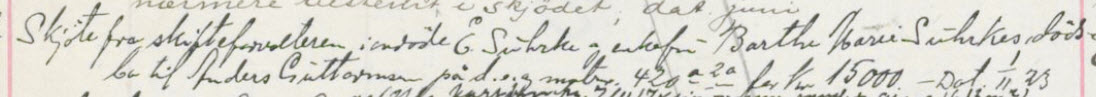 nærmere beskrevet i skjødet, dat. juni
Skjöte fra skifteforvalteren i avdöde C. Suhrke og enkefru Barthe Marie Suhrkes döds-
bo til Anders Guttormsen på d. e. g. matr. 420 a 2a for Kr. 15000. – Dat. 1/11 23